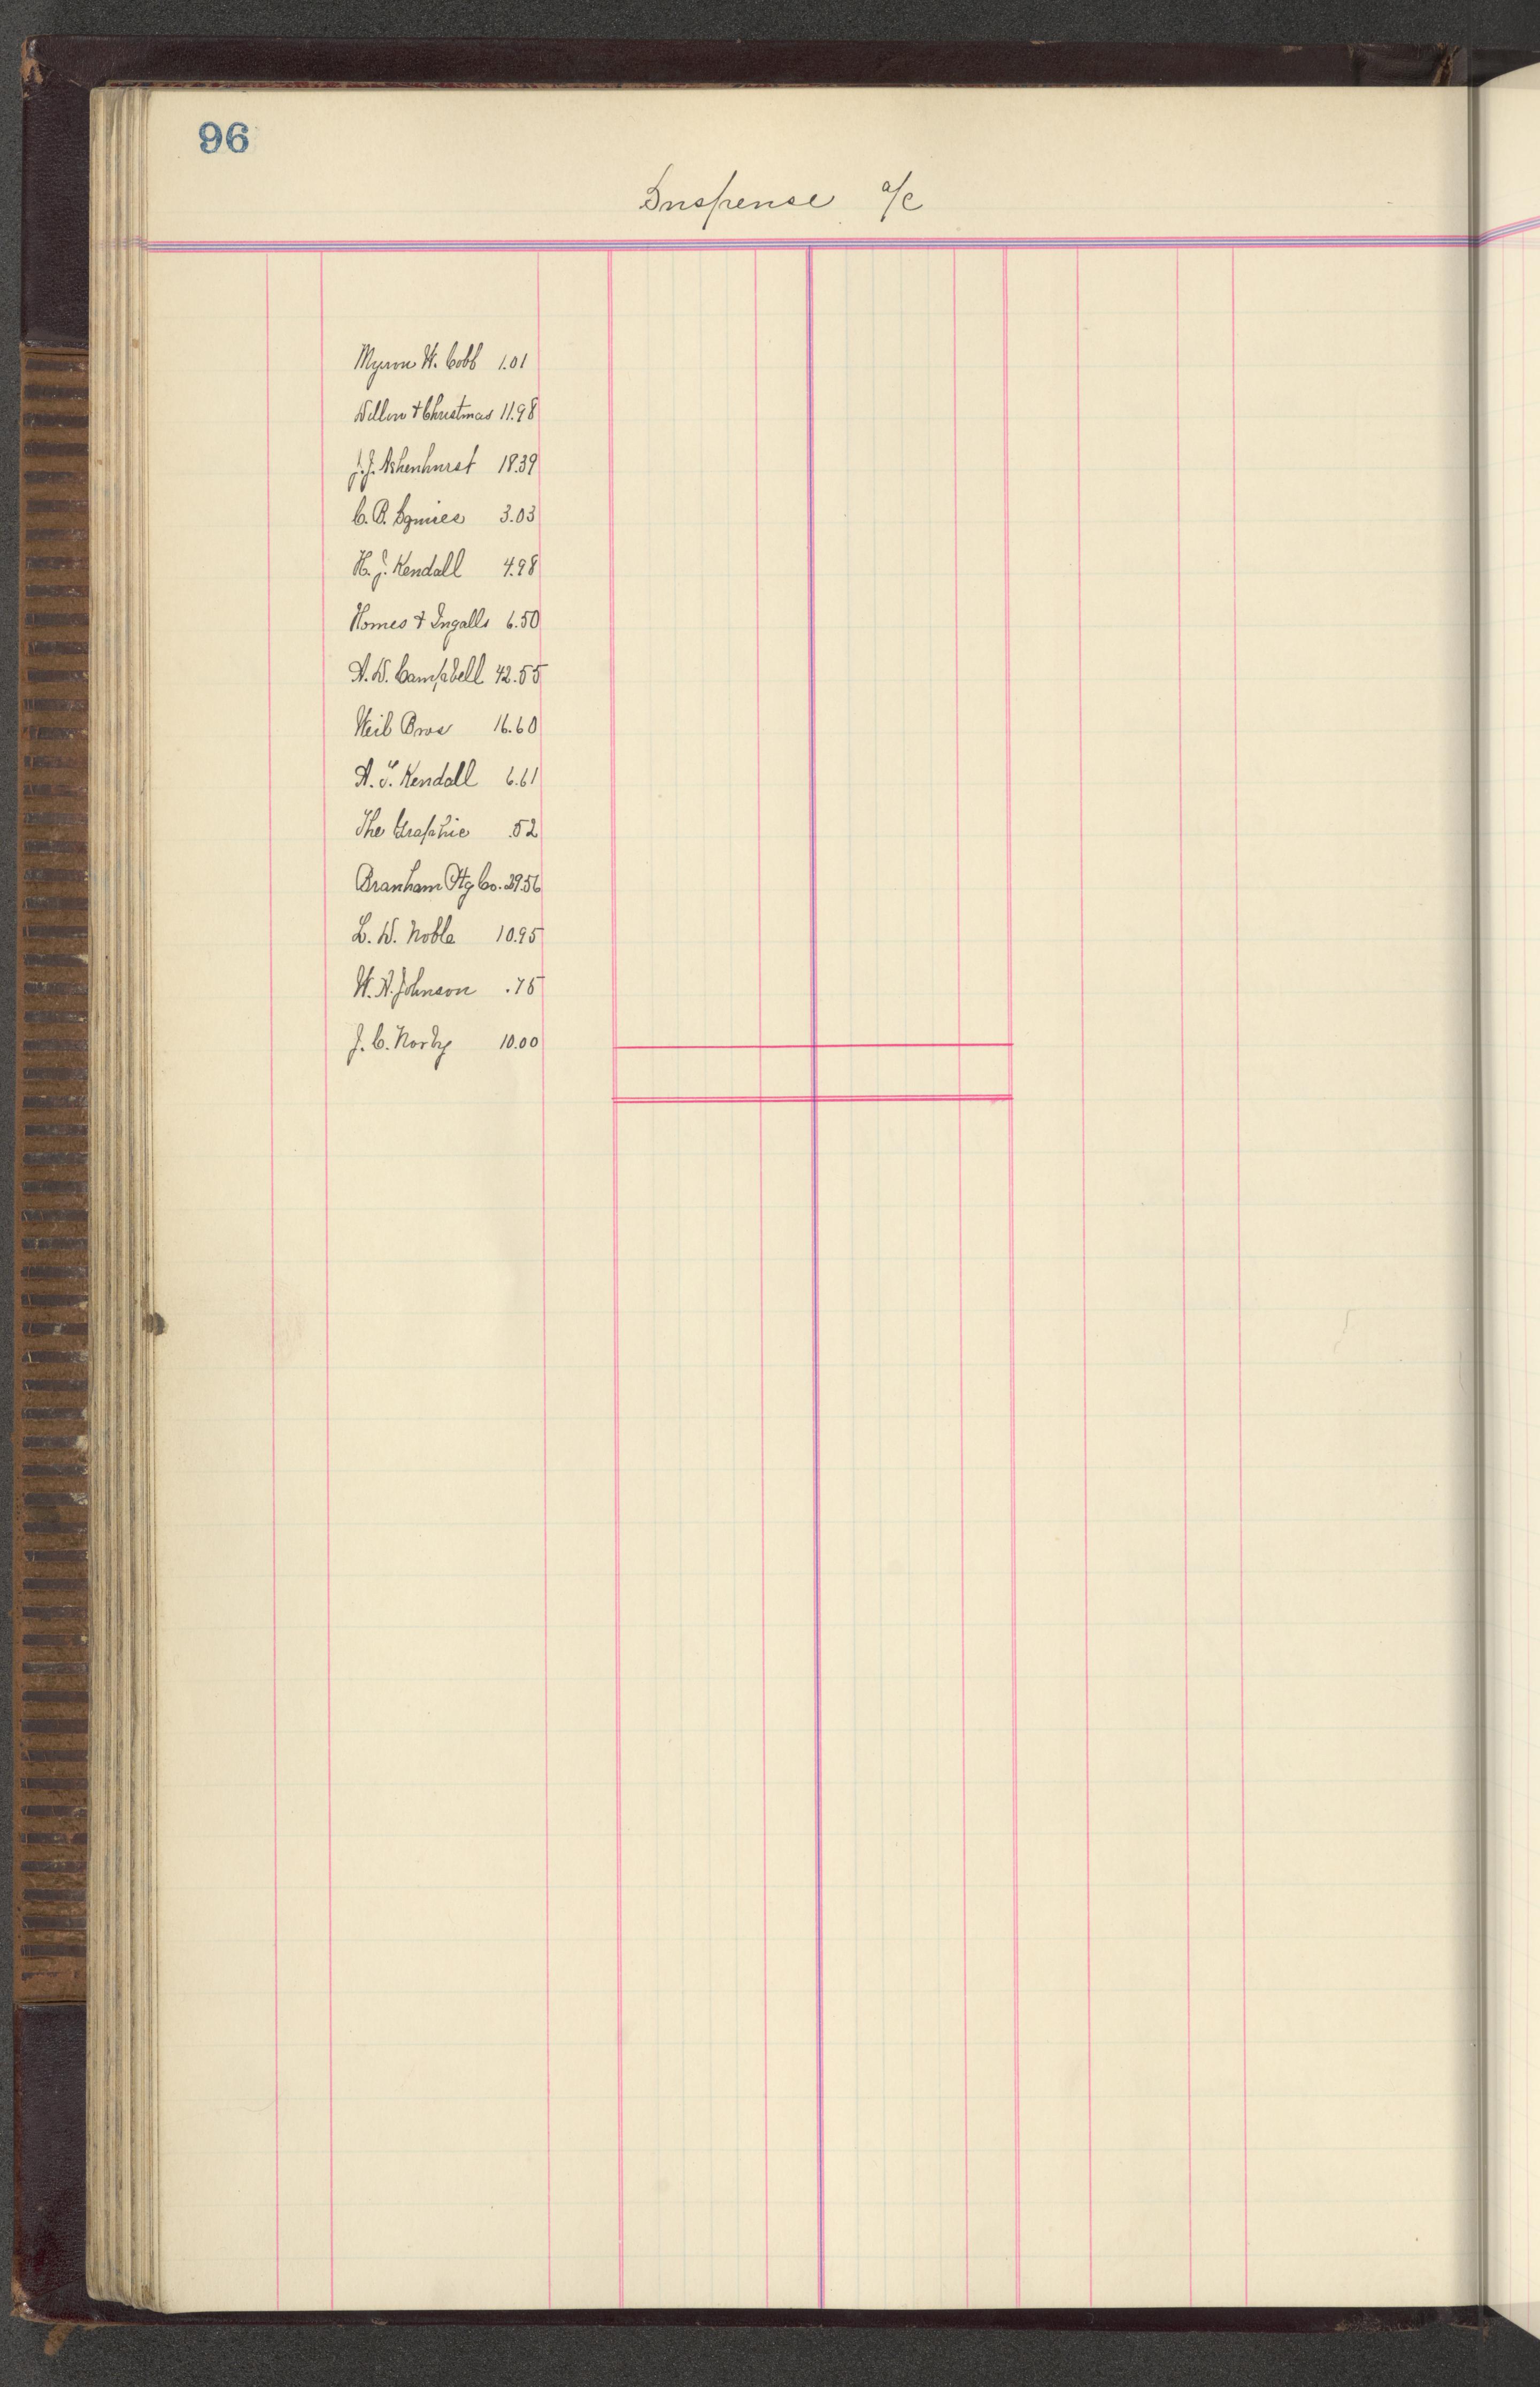 96
Suspense a/c
Myron W. Cobb 1.01
Dillon & Christmas 11.98
J.J. Ashenhurst 18.39
C. B. Squires 3.03
H. J. Kendall 4.98
Homes & Ingalls 6.50
A. D. Campbell 42.55
Weil Bros 16.60
A. T. Kendall 6.61
The Graphic .52
Branham Ptg Co. 39.56
L. D. Noble 10.95
W. A. Johnson .75
J. C. Norby 10.00